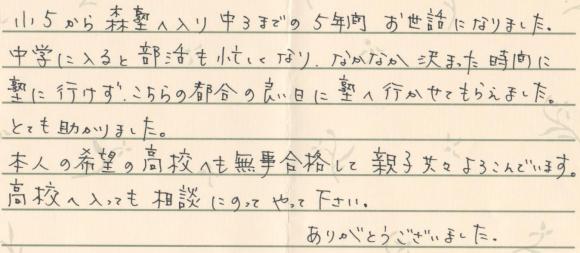 小5から森塾へ入り中3までの5年間お世話になりました。
中学に入ると部活も忙しくなり、なかなか決まった時間に
塾に行けず、こちらの都合の良い日に塾へ行かせてもらえました。
とても助かりました。
本人の希望の高校へも無事合格して親子共々よろこんでいます。
高校へ入っても相談にのってやって下さい。
ありがとうございました。